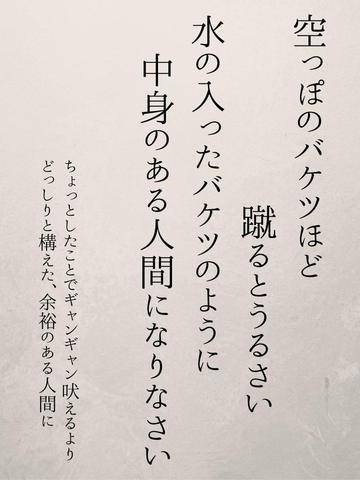 空っぽのバケツほど
蹴るとうるさい
水の入ったバケツのように
中身のある人間になりなさい
ちょっとしたことでギャンギャン吠えるより
どっしりと構えた、余裕のある人間に